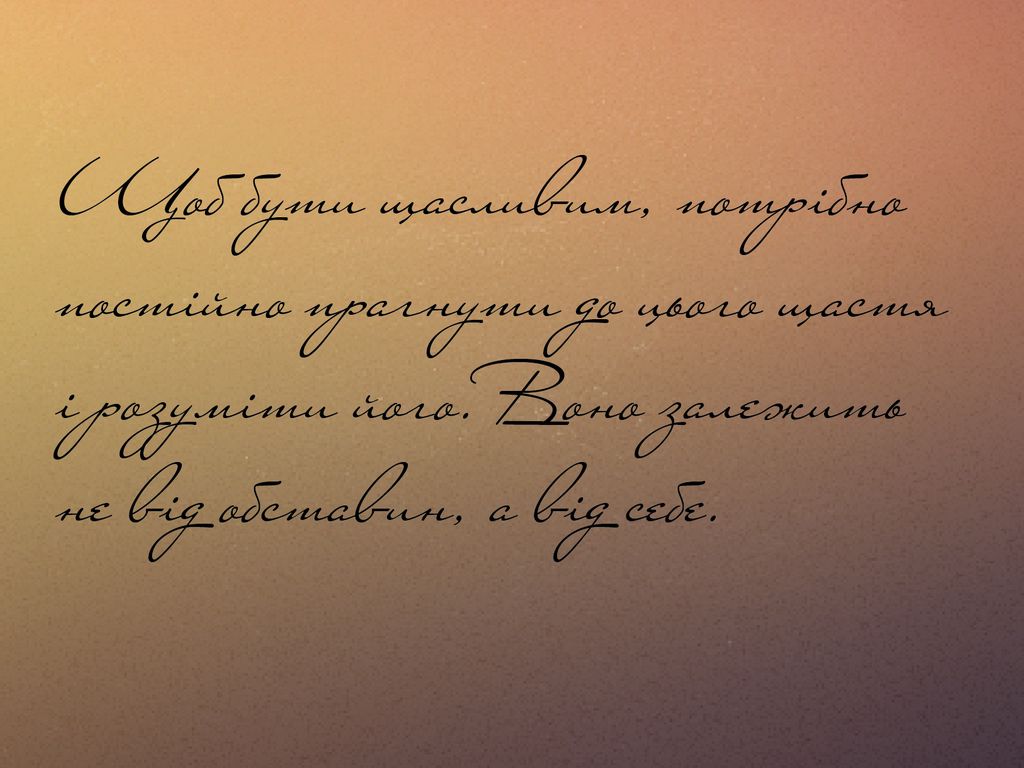 Щоб бути щасливим, потрібно
постійно прагнути до цього щастя
і розуміти його. Воно залежить
не від обставин, а від себе.